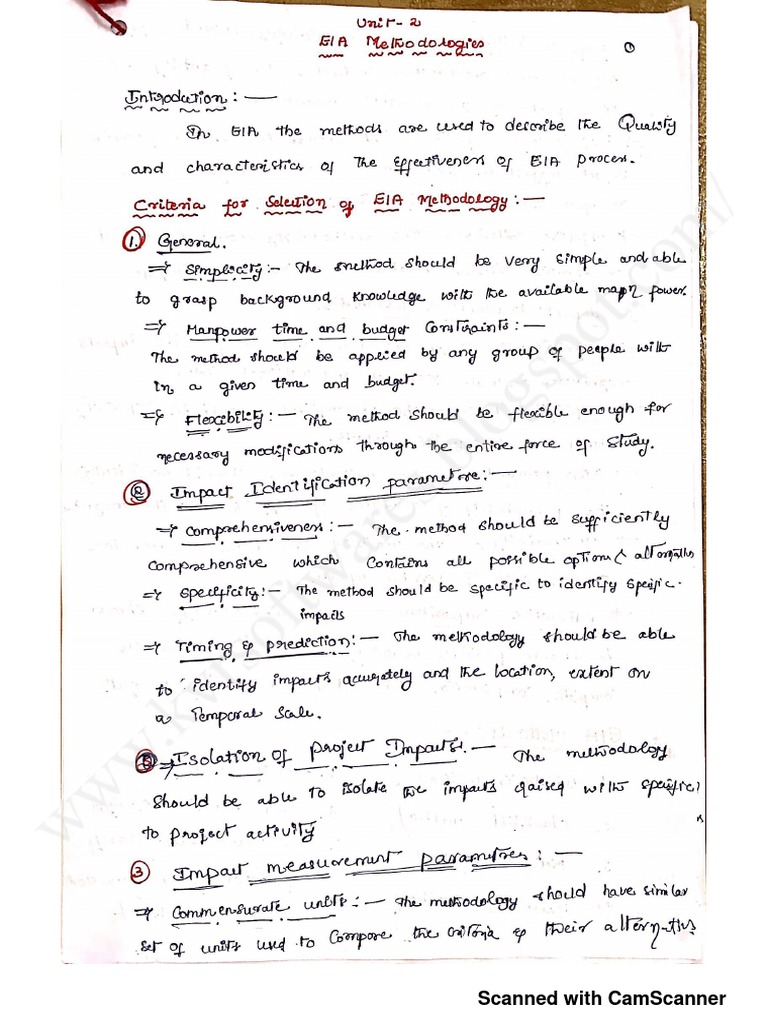 Unit-2
EIA Methodologies
1
Introduction :—
In EIA the methods are used to describe the Quality
and characteristics of The Effectiveness of EIA process.
Criteria for Selection of EIA Methodology :—
1. General.
⇒ Simplicity :- The method should be very simple and able
to grasp background knowledge with the available man power.
⇒ Manpower time and budget Constraints :—
The method should be applied by any group of people with
in a given time and budget.
⇒ Flexibility :— The method should be flexible enough for
necessary modifications through the entire force of study.
2 Impact Identification parametre :—
⇒ Comprehensiveness :— The method should be sufficiently
comprehensive which contains all possible options
⇒ Specificity :— The method should be specific to identify specific.
impacts
⇒ Timing & prediction :— The methodology should be able
to identify impacts accurately and the location, extent on
a Temporal Scale.
⇒ Isolation of project Impacts. — The methodology
should be able to isolate the impacts raised with specific
to project activity
3 Impact measurement parametres :—
⇒ Commensurate units :— The methodology should have similar
set of units used to compare the criteria & their alternatives
www.kwsoftwares.blogspot.com/
Scanned with CamScanner